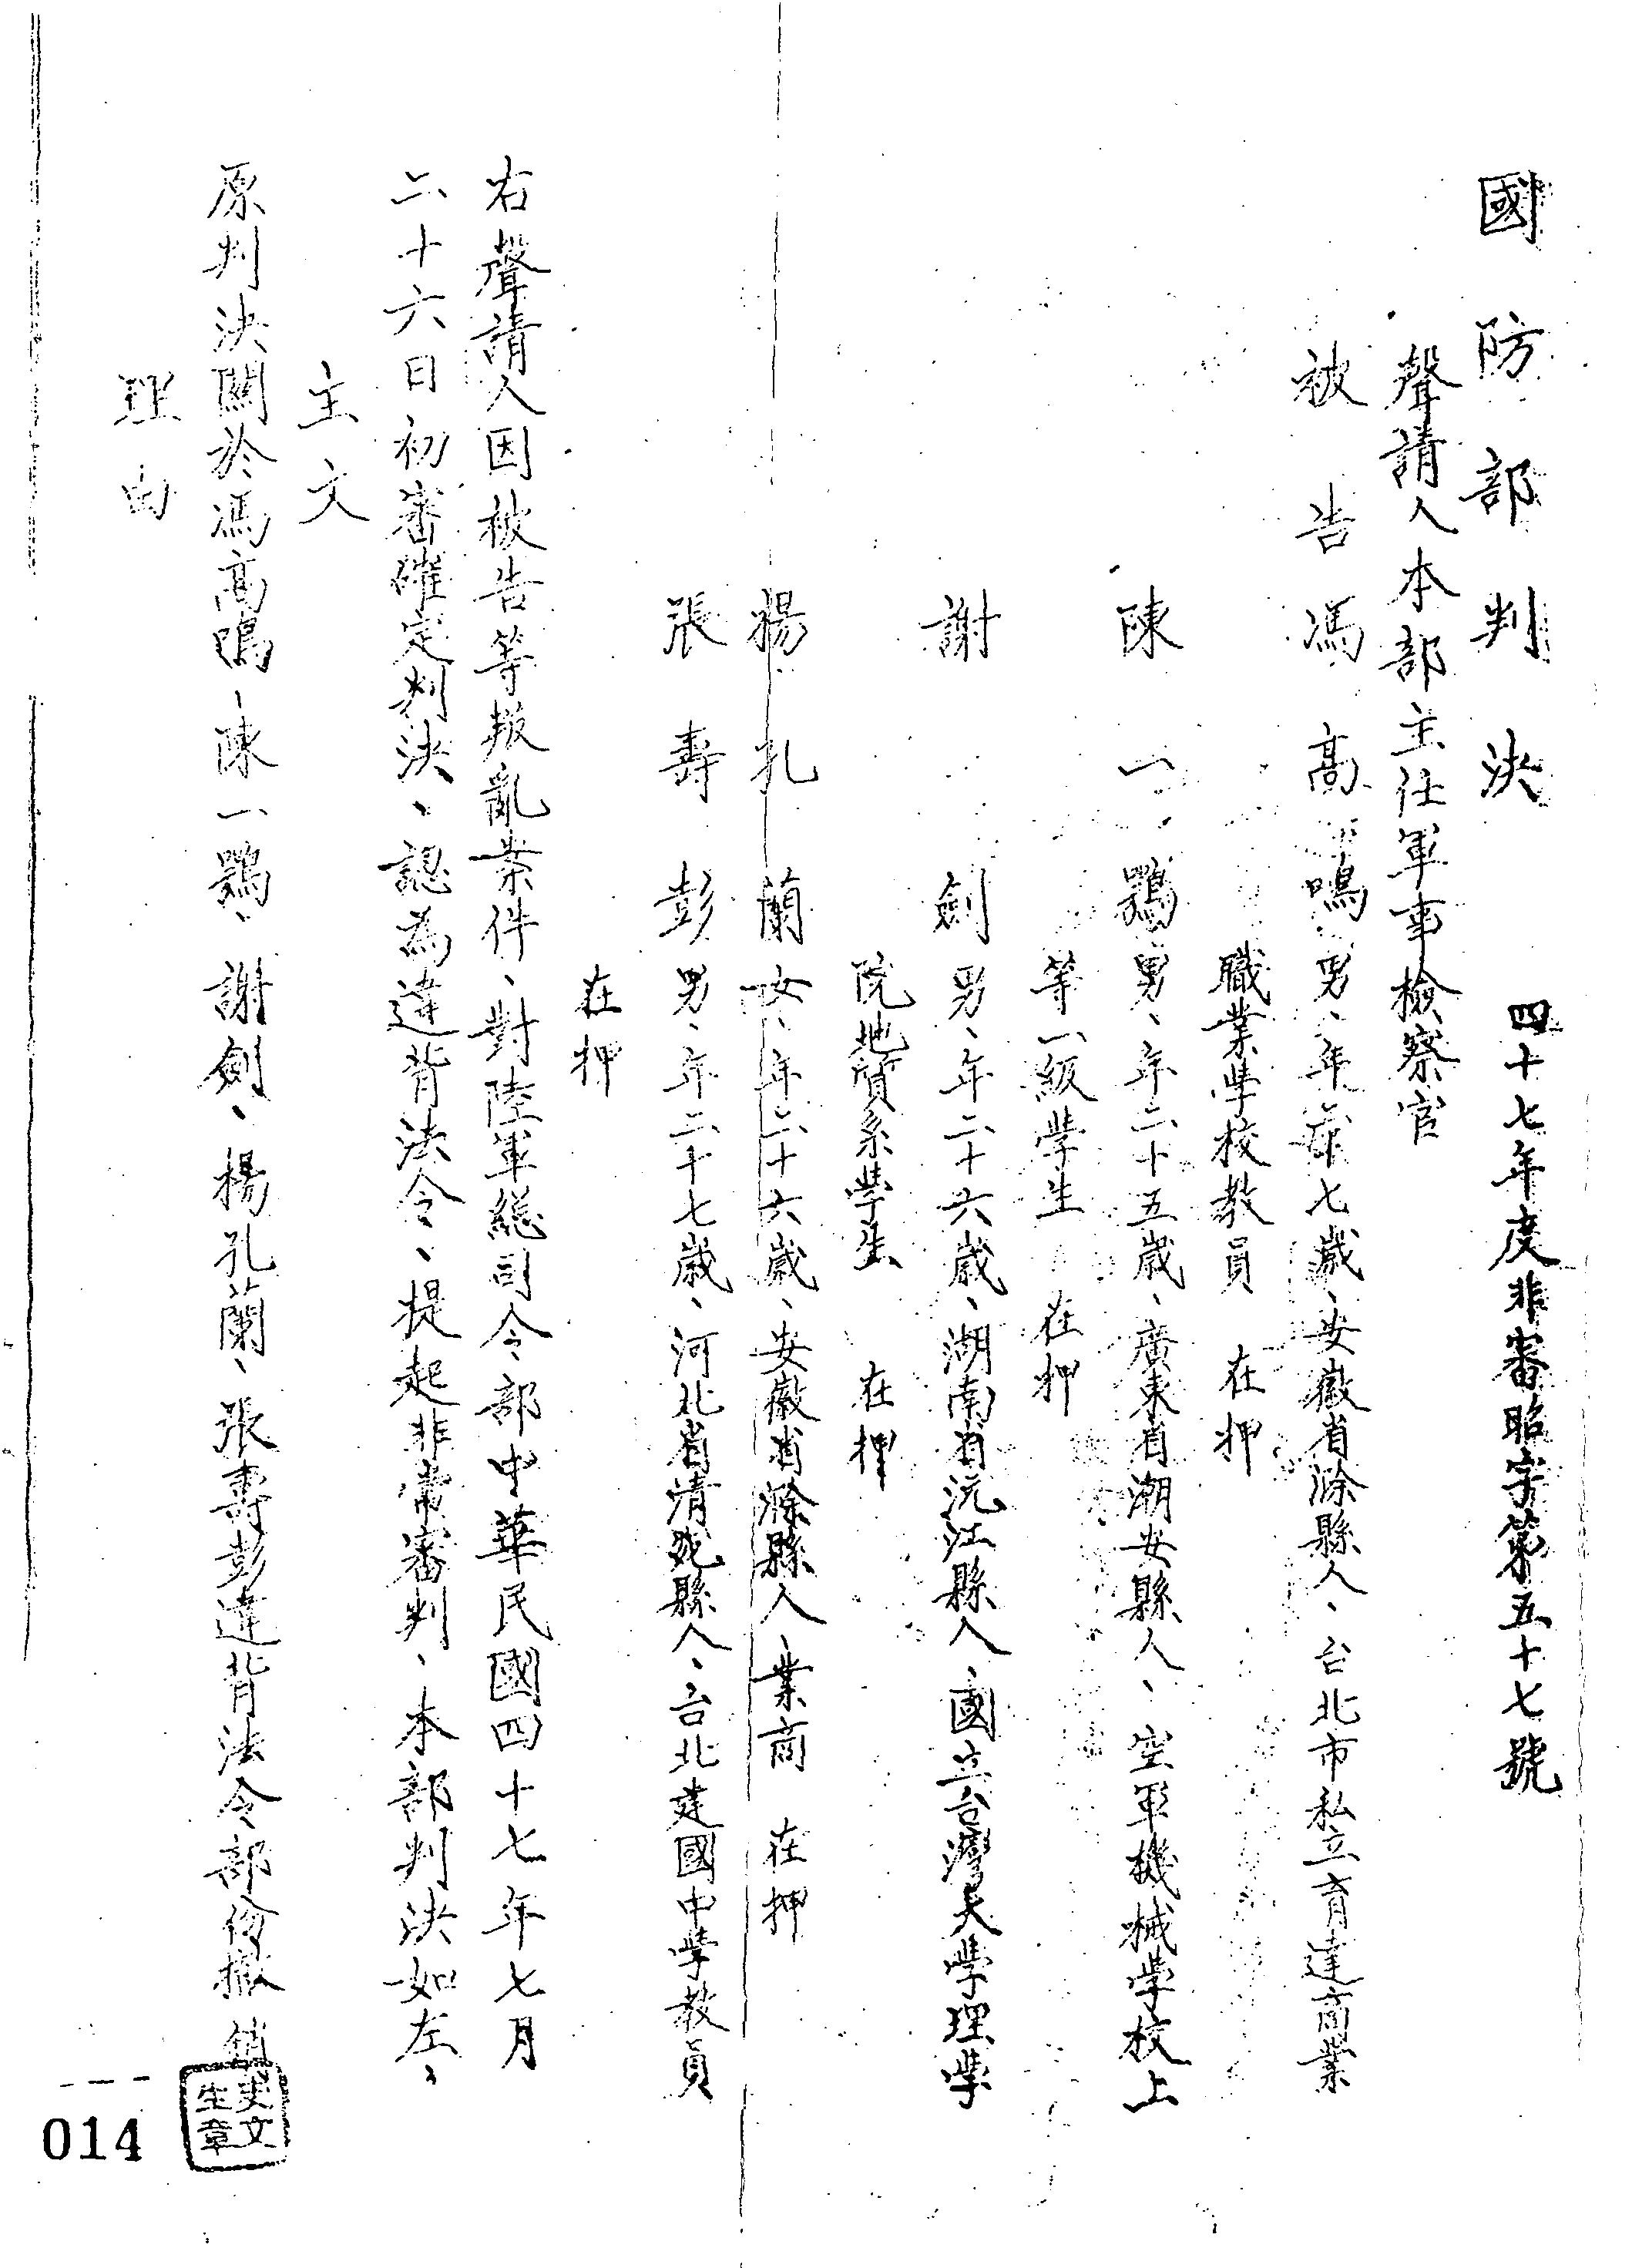 國防部判決
四十七年度非審昭字第五十七號
聲請人本部主任軍事檢察官
被告馮高鳴男、年卅七歲、安徽省滁縣人、台北市私立育達商業
職業學校教員 在押
陳一鶚男、年二十五歲、廣東省潮安縣人、空軍機械學校上
等一級學生 在押
謝劍男、年二十六歲、湖南省沅江縣人、國立台灣大學理學
院地質系學生 在押
楊孔蘭女、年二十六歲、安徽省滁縣人業商 在押
張壽彭男、年二十七歲、河北省清苑縣人、台北建國中學教員
在押
右聲請人因被告等叛亂案件、對陸軍總司令部中華民國四十七年七月
二十六日初審確定判決、認為違背法令、提起非常審判、本部判決如左、
主文
原判決關於馮高鳴、陳一鶚、謝劍、楊孔蘭、張壽彭違背法令部份撤銷
理由
014